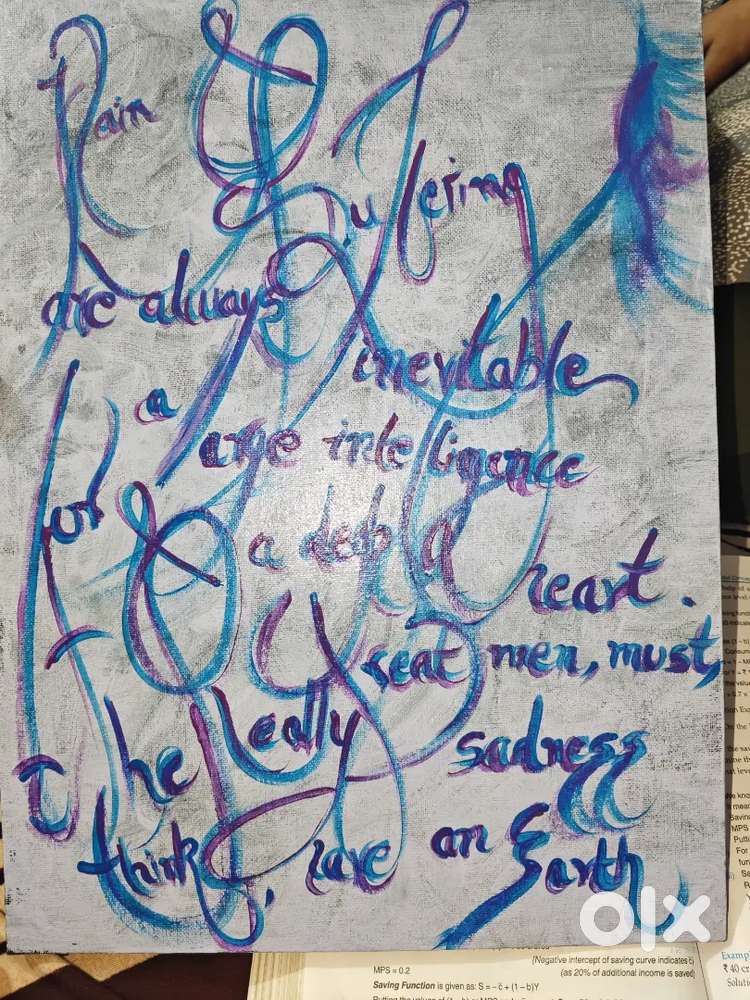 Pain & Suffering
are always inevitable
for a large intelligence
& a deep heart.
The Really great men, must,
I think, have sadness
on Earth
olx
MPS = 0.2
(Negative intercept of saving curve indicates c̄)
(as 20% of additional income is saved)
Saving Function is given as: S = – c̄ + (1 – b)Y